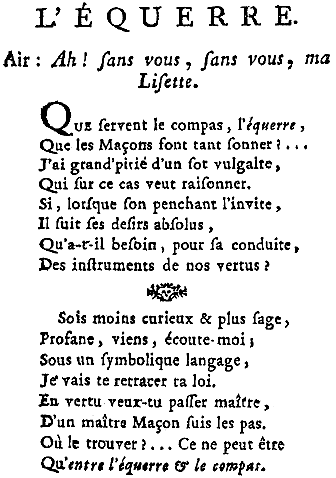 L'ÉQUERRE.
Air : Ah ! ſans vous, ſans vous, ma
Liſette.
Que ſervent le compas, l'équerre,
Que les Maçons font tant ſonner ?...
J'ai grand'pitié d'un ſot vulgaire,
Qui ſur ce cas veut raiſonner.
Si, lorſque ſon penchant l'invite,
Il ſuit ſes deſirs abſolus,
Qu'a-t-il beſoin, pour ſa conduite,
Des inſtruments de nos vertus ?
Sois moins curieux & plus ſage,
Profane, viens, écoute-moi ;
Sous un ſymbolique langage,
Je vais te retracer ta loi.
En vertu veux-tu paſſer maître,
D'un maître Maçon ſuis les pas.
Où le trouver ?... Ce ne peut être
Qu'entre l'équerre & le compas.